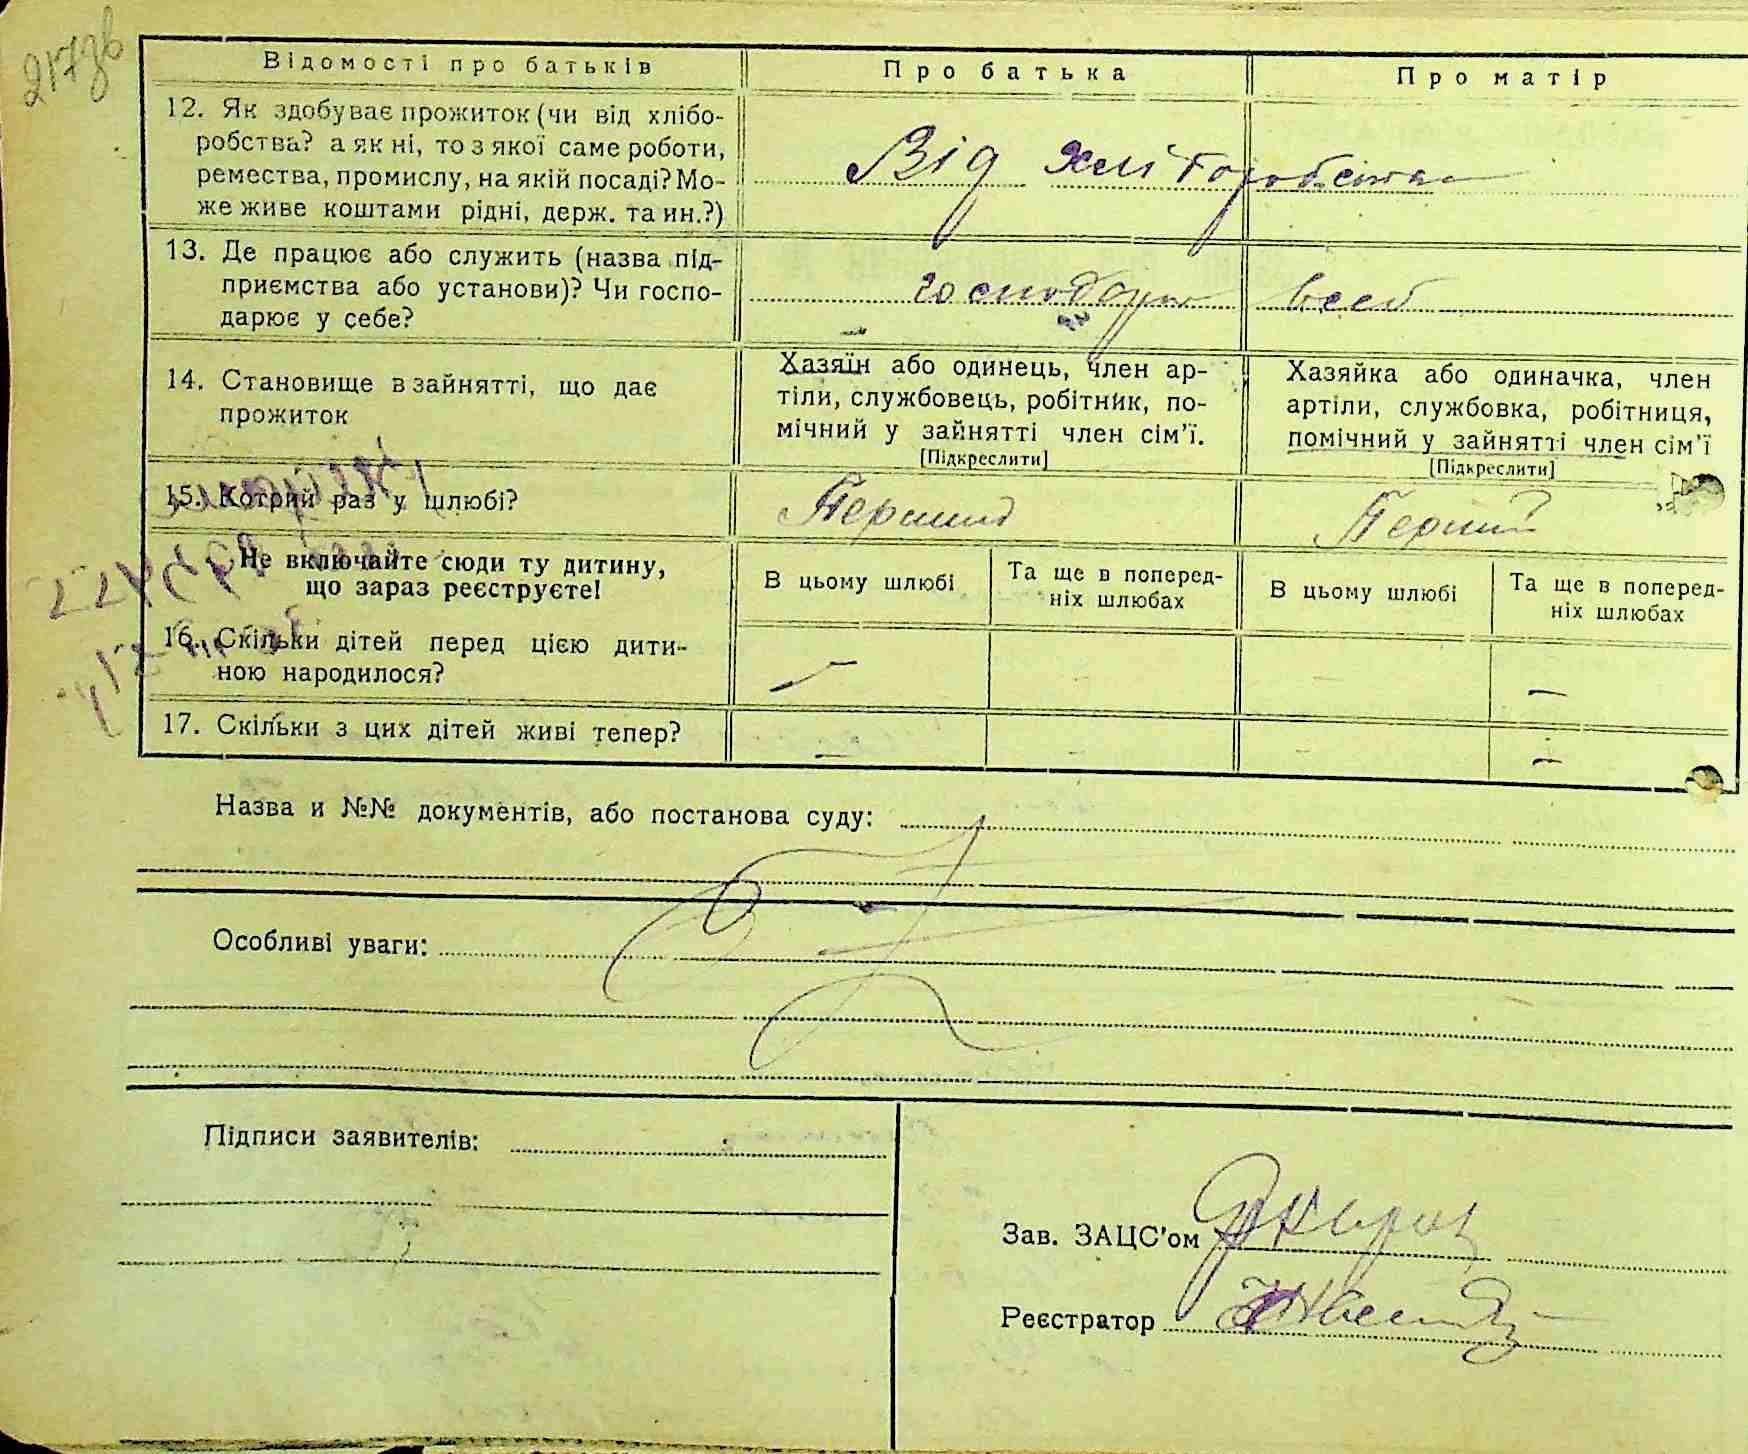 217зв
Відомості про батьків
Про батька
Про матір
12. Як здобуває прожиток (чи від хлібо-
робства? а як ні, то з якої саме роботи,
ремества, промислу, на якій посаді? Мо-
же живе коштами рідні, держ. та ин.?)
Від хліборобства
13. Де працює або служить (назва під-
приємства або установи)? Чи госпо-
дарює у себе?
господарює
14. Становище в зайнятті, що дає
прожиток
Хазяїн або одинець, член ар-
тіли, службовець, робітник, по-
мічний у зайнятті член сім'ї.
[Підкреслити]
Хазяйка або одиначка, член
артіли, службовка, робітниця,
помічний у зайнятті член сім'ї
[Підкреслити]
15. Котрий раз у шлюбі?
Перший
Перший
Не включайте сюди ту дитину,
що зараз реєструєте!
В цьому шлюбі
Та ще в поперед-
ніх шлюбах
В цьому шлюбі
Та ще в поперед-
ніх шлюбах
16. Скільки дітей перед цією дити-
ною народилося?
— —
17. Скільки з цих дітей живі тепер?
— — — —
Назва и №№ документів, або постанова суду:
Особливі уваги:
Підписи заявителів:
Зав. ЗАЦС'ом
Реєстратор